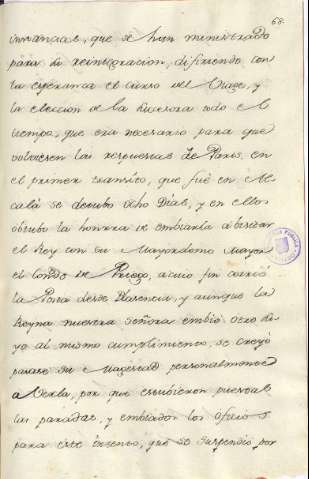 68.
que se han ministrado
para la reintegracion, difiriendo con
la esperanza el curso del Viage, y
la eleccion de la
tiempo, que era necesario para que
volviesen las respuestas de Paris, en
el primer transito, que fué en Al
calá se detubo ocho Dias, y en ellos
obtubo la honrra de embiarla a visitar
el Rey con su Mayordomo Mayor
el Conde de Priego, a cuio fin corrió
la Posta desde Plasencia, y aunque la
Reyna nuestra Señora embió otro su
yo al mismo cumplimiento, se creyó
pasase su Magestad personalmente
a por que estubieron puestas
las paradas, y embiados los oficios
para este intento, que se suspendió por